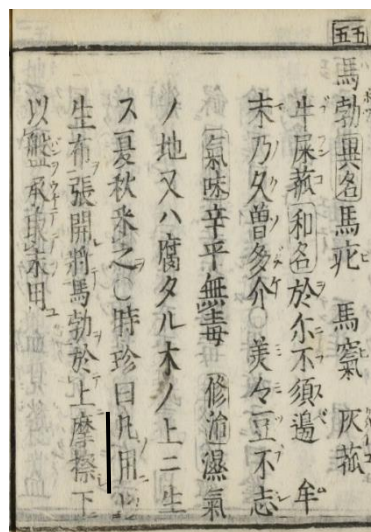 五五
馬勃 異名 馬疕 馬窼 灰菰
牛屎菰 和名 於尓不須邉 牟
末乃久曽多介○美々豆不志
氣味 辛平無毒 修治 濕氣
ノ地又ハ腐タル木ノ上ニ生
ス夏秋采之○時珍曰凡用以
生布張開將馬勃於上摩擦下
以盤承取末用